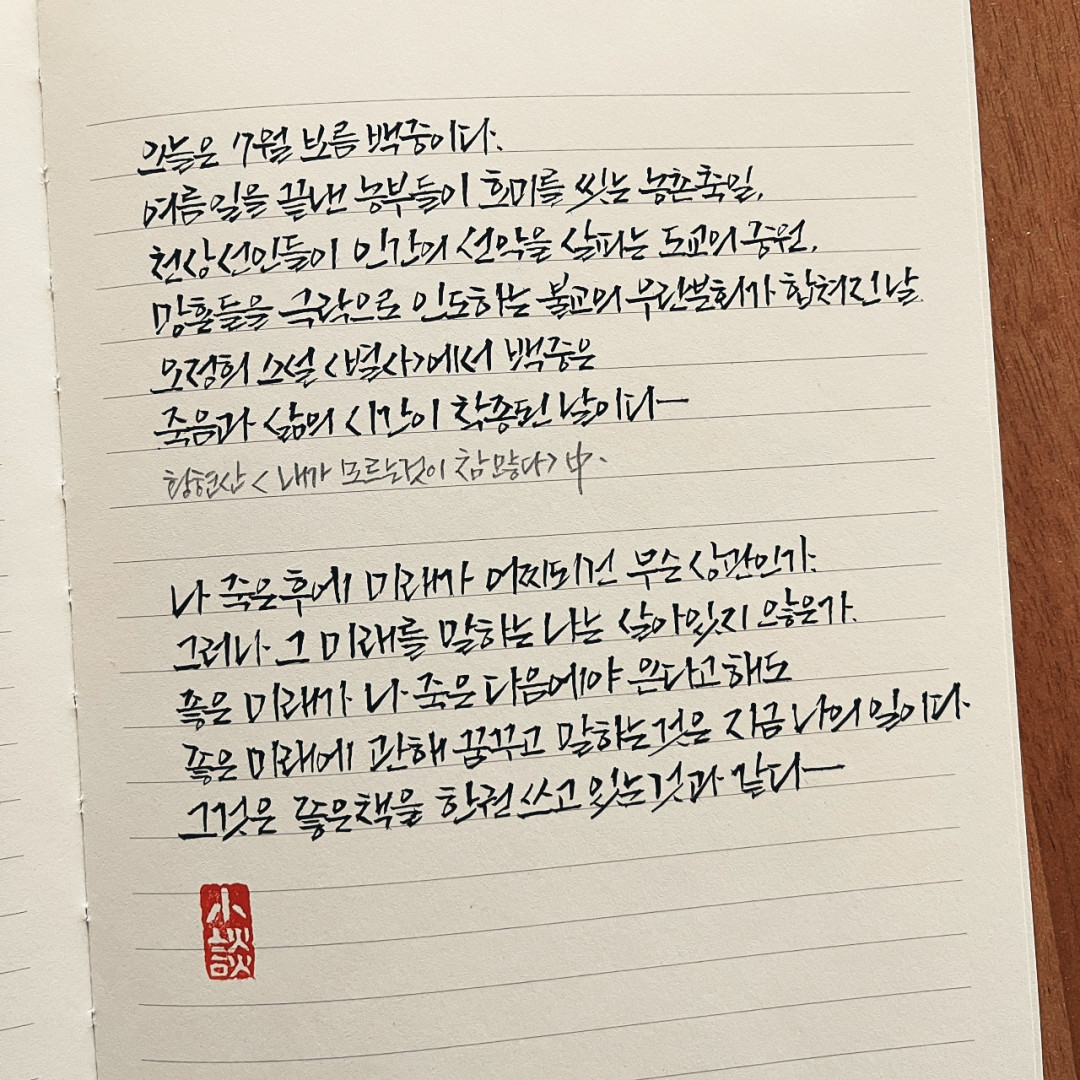 오늘은 7월 보름 백중이다.
여름 일을 끝낸 농부들이 호미를 씻는 농촌축일,
천상선인들이 인간의 선악을 살피는 도교의 중원,
망혼들을 극락으로 인도하는 불교의 우란분회가 합쳐진 날.
오정희 소설 <별사>에서 백중은
죽음과 삶의 시간이 착종된 날이다—
황현산 <내가 모르는것이 참 많다> 中.
나 죽은후에 미래가 어찌되건 무슨 상관인가.
그러나 그 미래를 말하는 나는 살아있지 않은가.
좋은 미래가 나 죽은 다음에야 온다고해도
좋은 미래에 관해 꿈꾸고 말하는것은 지금 나의 일이다.
그것은 좋은책을 한권 쓰고 있는것과 같다—
小談